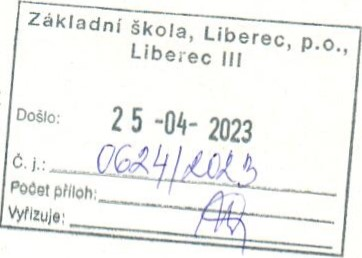 Základní škola, Liberec, p.o.,
Liberec III
Došlo: 25 -04- 2023
Č. j.: 0624/2023
Počet příloh:
Vyřizuje: